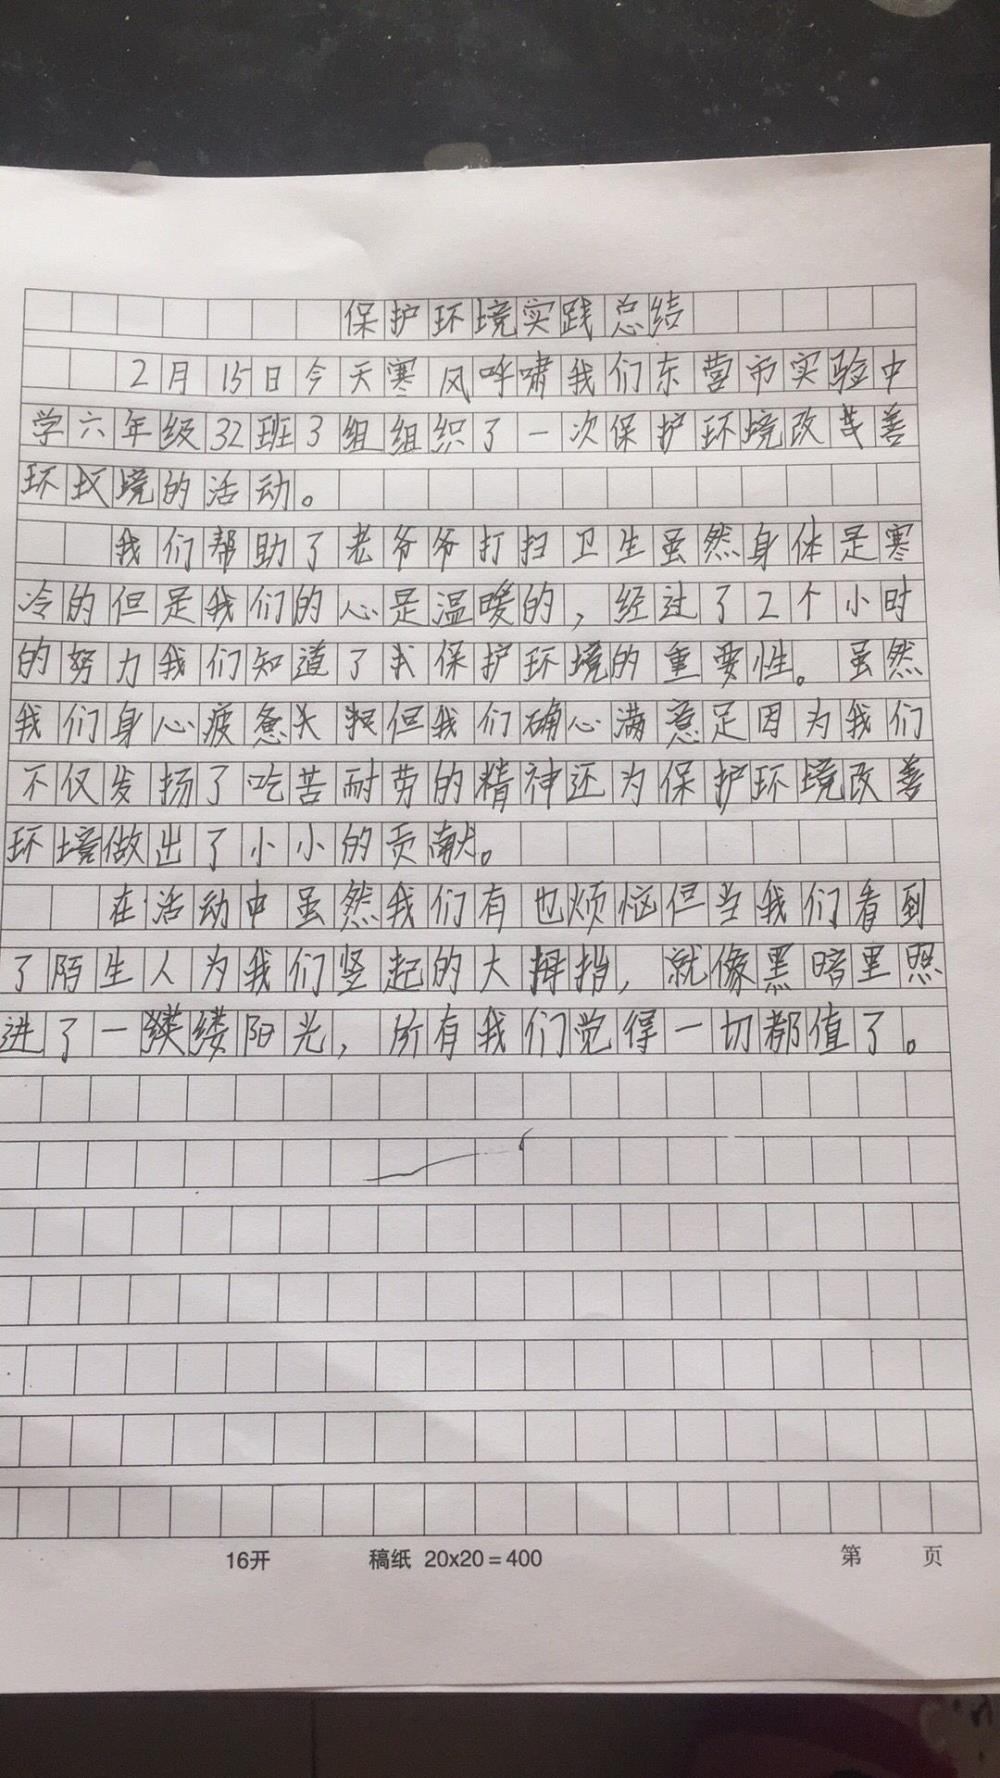 保护环境实践总结
2月15日今天寒风呼啸我们东营市实验中
学六年级32班3组组织了一次保护环境改善
环境的活动。
我们帮助了老爷爷打扫卫生虽然身体是寒
冷的但是我们的心是温暖的,经过了2个小时
的努力我们知道了保护环境的重要性。虽然
我们身心疲惫但我们确心满意足因为我们
不仅发扬了吃苦耐劳的精神还为保护环境改善
环境做出了小小的贡献。
在活动中虽然我们有也烦恼但当我们看到
了陌生人为我们竖起的大拇指,就像黑暗里照
进了一缕缕阳光,所有我们觉得一切都值了。
16开 稿纸 20x20=400 第 页